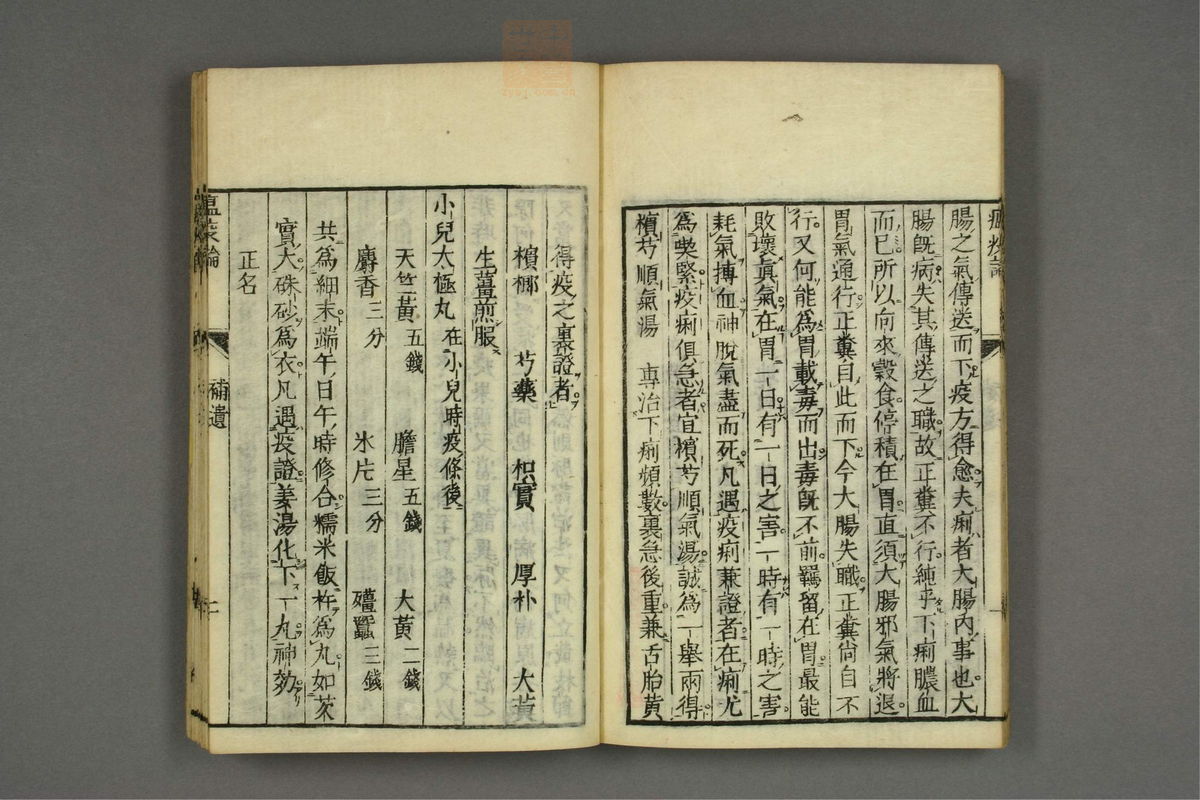 腸之氣傳送而下疫方得愈夫痢者大腸内事也大
腸既病失其傳送之職故正糞不行純乎下痢膿血
而已所以向來穀食停積在胃直須大腸邪氣將退
胃氣通行正糞自此而下今大腸失職正糞尚自不
行又何能為胃載毒而出毒既不前羈留在胃最能
敗壞眞氣在胃一日有一日之害一時有一時之害
耗氣搏血神脫氣盡而死凡遇疫痢兼證者在痢尤
為喫緊疫痢俱急者宜檳芍順氣湯誠為一舉兩得
檳芍順氣湯 專治下痢頻數裏急後重兼舌胎黃
得疫之裏證者
檳榔 芍藥 枳實 厚朴 大黃
生薑煎服
小兒太極丸 在小兒時疫條後
天竺黃五錢 膽星五錢 大黃二錢
麝香三分 氷片三分 殭蠶三錢
共為細末端午日午時修合糯米飯杵為丸如芡
實大硃砂為衣凡遇疫證姜湯化下一丸神効
正名
補遺